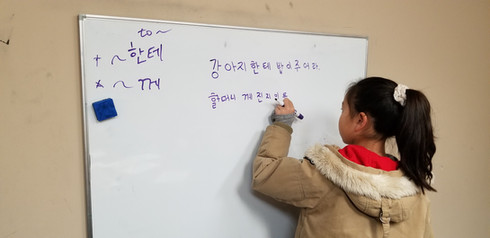 to ~
+ ~한테
* ~께
강아지한테 밥이주어라.
할머니 께 진지